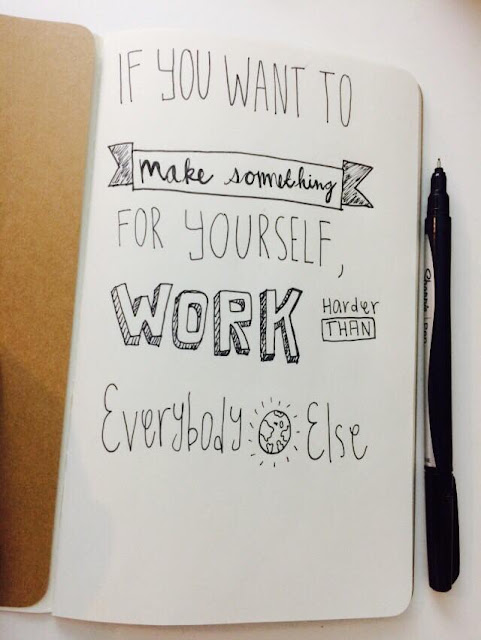 IF YOU WANT TO
make something
FOR YOURSELF,
WORK Harder THAN
Everybody Else
Sharpie Pen